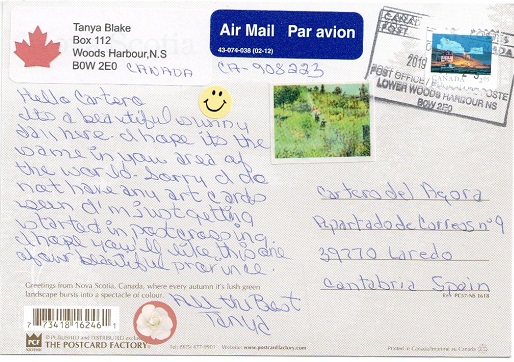 Tanya Blake
Box 112
Woods Harbour,N.S
B0W 2E0 CANADA
Air Mail Par avion
43-074-038 (02-12)
CA-908223
CANADA
POST
POSTES
CANADA
2019
POST OFFICE / BUREAU DE POSTE
LOWER WOODS HARBOUR NS
B0W 2E0
CANADA
Hello Cartero
Its a beautiful sunny
day here. I hope its the
same in your area of
the world. Sorry I do
not have any art cards
I'm just getting
started in postcrossing.
I hope you'll like this one
of our beautiful province.
All the Best
Tanya
Cartero del Agora
Apartado de Correos nº 9
39770 Laredo
Cantabria Spain
Greetings from Nova Scotia, Canada, where every autumn it's lush green
landscape bursts into a spectacle of colour.
7 73418 16246 1
PCF
PUBLISHED and DISTRIBUTED
THE POSTCARD FACTORY
Tel: (905) 477-9901 Website: www.postcardfactory.com
Ref: PC57-NS 1618
Printed in Canada/Imprimé au Canada